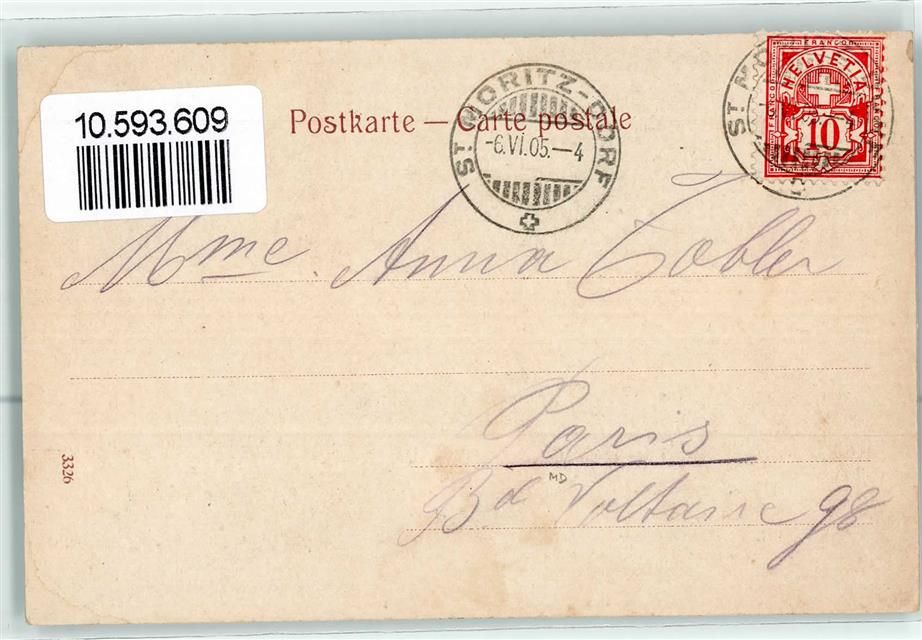 10.593.609
Postkarte — Carte postale
ST. MORITZ-DORF
-6.VI.05.-4
ST. MO
FRANCO
HELVETIA
10
Mme Anna Tobler
Paris
MD
Bd Voltaire 98
3326